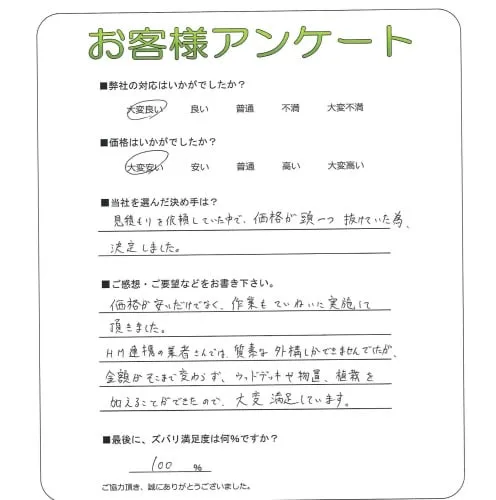 お客様アンケート
■弊社の対応はいかがでしたか？
大変良い 良い 普通 不満 大変不満
■価格はいかがでしたか？
大変安い 安い 普通 高い 大変高い
■当社を選んだ決め手は？
見積もりを依頼していた中で、価格が頭一つ抜けていた為、
決定しました。
■ご感想・ご要望などをお書き下さい。
価格が安いだけでなく、作業もていねいに実施して
頂きました。
HM連携の業者さんでは、質素な外構しかできませんでしたが、
金額がそこまで変わらず、ウッドデッキや物置、植栽を
加えることができたので、大変満足しています。
■最後に、ズバリ満足度は何%ですか？
100 %
ご協力頂き、誠にありがとうございました。